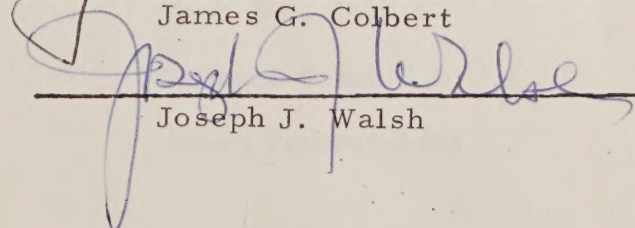 James G. Colbert
Joseph J. Walsh
Joseph J. Walsh